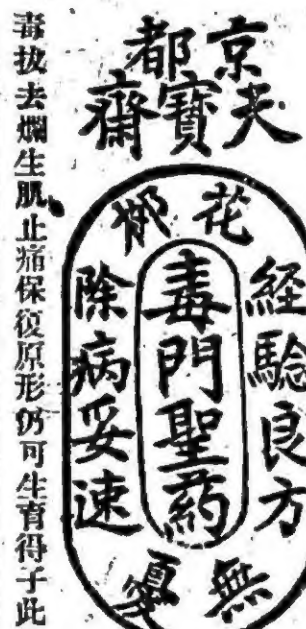 京都
夫寶齋
花柳
経驗良方
毒門聖葯
除病妥速
無
毒拔去爛生肌止痛保復原形仍可生育得子此